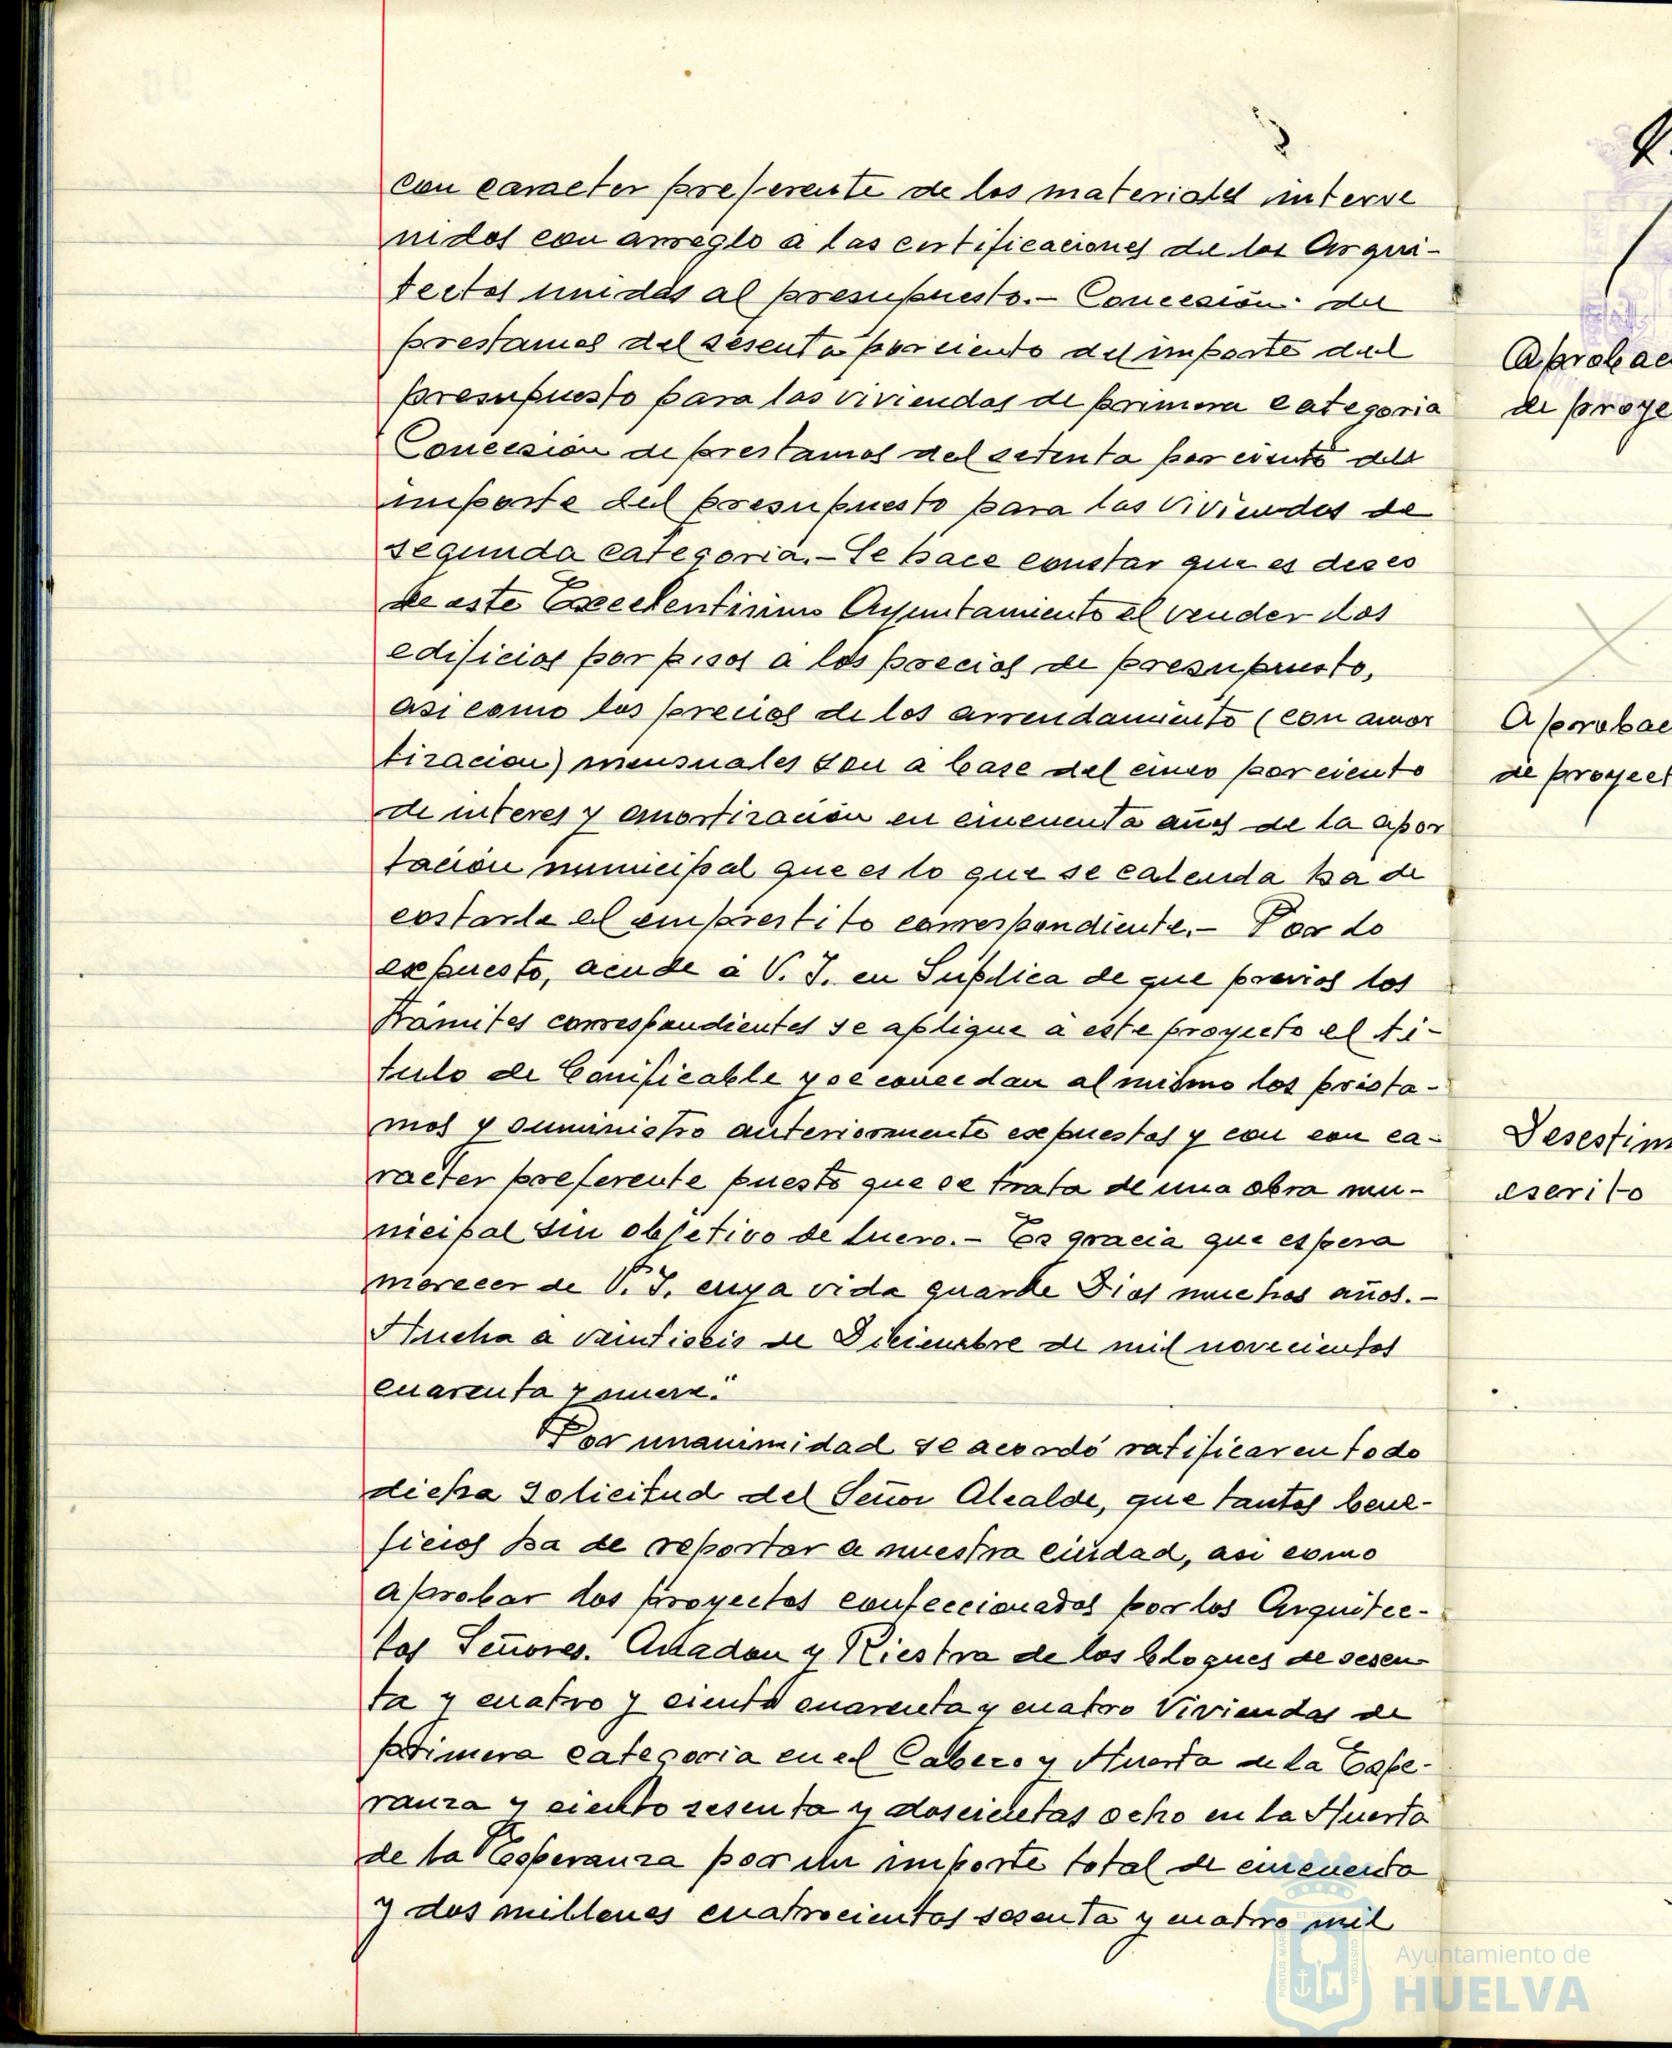 con caracter preferente de los materiales interve
nidos con arreglo a las certificaciones de los Arqui-
tectos unidas al presupuesto.- Concesión de
prestamos del sesenta por ciento del importe del
presupuesto para las viviendas de primera categoria
Concesión de prestamos del setenta por ciento del
importe del presupuesto para las viviendas de
segunda categoria.- Se hace constar que es deseo
de este Excelentisimo Ayuntamiento el vender los
edificios por pisos a los precios de presupuesto,
asi como los precios de los arrendamiento (con amor
tizacion) mensuales son a base del cinco por ciento
de interes y amortización en cincuenta años de la apor
tación municipal que es lo que se calcula ha de
costarle el emprestito correspondiente.- Por lo
expuesto, acude a V. I. en Suplica de que previos los
trámites correspondientes se aplique a este proyecto el ti-
tulo de bonificable y se concedan al mismo los presta-
mos y suministro anteriormente expuestos y con con ca-
racter preferente puesto que se trata de una obra mu-
nicipal sin objetivo de lucro.- Es gracia que espera
merecer de V. I. cuya vida guarde Dios muchos años.-
a veintiseis de Diciembre de mil novecientos
cuarenta y nueve."
Por unanimidad se acordó ratificar en todo
dicha solicitud del Señor Alcalde, que tantos bene-
ficios ha de reportar a nuestra ciudad, asi como
aprobar los proyectos confeccionados por los Arquitec-
tos Señores. Anadon y Riestra de los bloques de sesen
ta y cuatro y ciento cuarenta y cuatro Viviendas de
primera categoria en el Cabezo y Huerta de la Espe-
ranza y ciento sesenta y doscientas ocho en la Huerta
de la Esperanza por un importe total de cincuenta
y dos millones cuatrocientos sesenta y cuatro mil
Aprobac
de proye
Aprobac
de proyect
Desestim
escrito
Ayuntamiento de
HUELVA